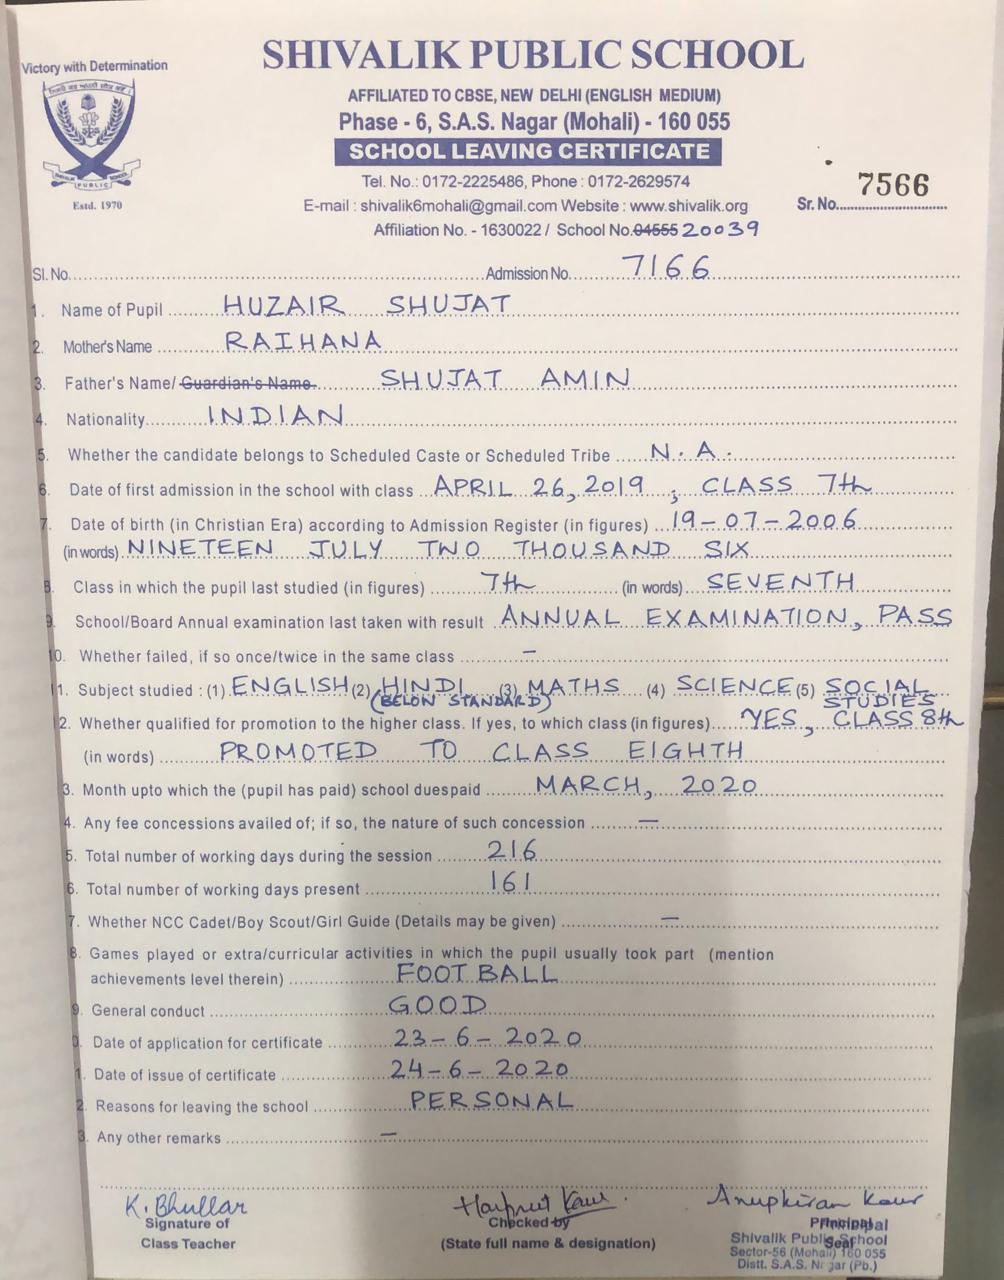 Victory with Determination
SHIVALIK PUBLIC SCHOOL
AFFILIATED TO CBSE, NEW DELHI (ENGLISH MEDIUM)
Phase - 6, S.A.S. Nagar (Mohali) - 160 055
SCHOOL LEAVING CERTIFICATE
Tel. No.: 0172-2225486, Phone : 0172-2629574
E-mail : shivalik6mohali@gmail.com Website : www.shivalik.org
PUBLIC SCHOOL
Estd. 1970
Sr. No. 7566
Affiliation No. - 1630022 / School No. 04555 20039
Sl. No. Admission No. 7166
1. Name of Pupil HUZAIR SHUJAT
2. Mother's Name RAIHANA
3. Father's Name/ Guardian's Name. SHUJAT AMIN
4. Nationality INDIAN
5. Whether the candidate belongs to Scheduled Caste or Scheduled Tribe N.A.
6. Date of first admission in the school with class APRIL 26, 2019 , CLASS 7th
7. Date of birth (in Christian Era) according to Admission Register (in figures) 19-07-2006
(in words) NINETEEN JULY TWO THOUSAND SIX
8. Class in which the pupil last studied (in figures) 7th (in words) SEVENTH
9. School/Board Annual examination last taken with result ANNUAL EXAMINATION, PASS
10. Whether failed, if so once/twice in the same class –
11. Subject studied : (1) ENGLISH (2) HINDI (3) MATHS (4) SCIENCE (5) SOCIAL STUDIES
(BELOW STANDARD)
2. Whether qualified for promotion to the higher class. If yes, to which class (in figures) YES, CLASS 8th
(in words) PROMOTED TO CLASS EIGHTH
3. Month upto which the (pupil has paid) school duespaid MARCH, 2020
4. Any fee concessions availed of; if so, the nature of such concession —
5. Total number of working days during the session 216
6. Total number of working days present 161
7. Whether NCC Cadet/Boy Scout/Girl Guide (Details may be given) —
8. Games played or extra/curricular activities in which the pupil usually took part (mention
achievements level therein) FOOTBALL
9. General conduct GOOD
0. Date of application for certificate 23-6-2020
1. Date of issue of certificate 24-6-2020
2. Reasons for leaving the school PERSONAL
3. Any other remarks –
K. Bhullar Harpreet Kaur. Anupkiran Kaur
Signature of
Class Teacher
Checked by
(State full name & designation)
Principal
Seal
Principal
Shivalik Public School
Sector-56 (Mohali) 160 055
Distt. S.A.S. Nagar (Pb.)